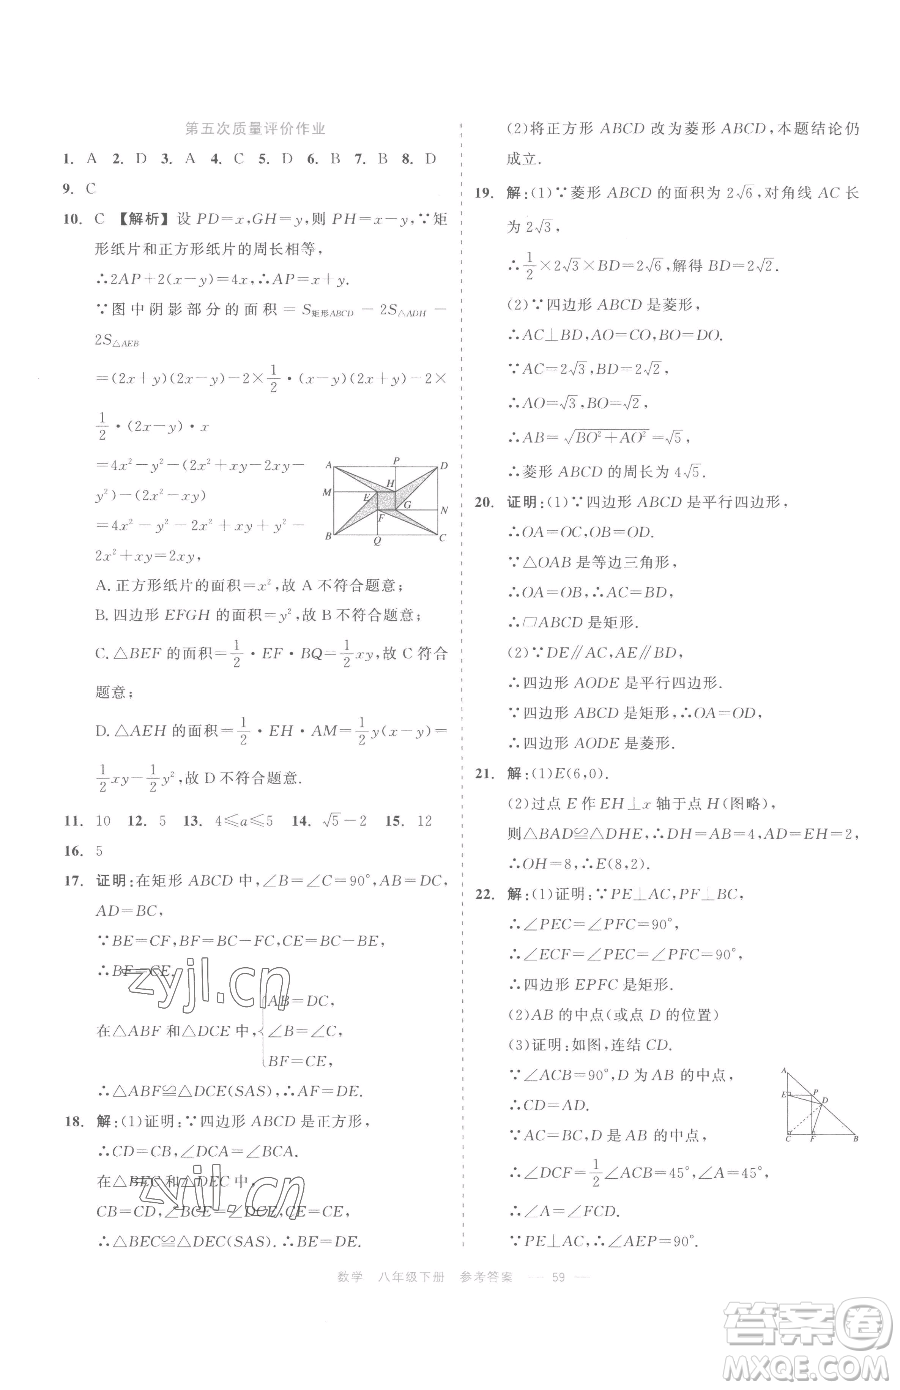 第五次质量评价作业
1. A 2. D 3. A 4. C 5. D 6. B 7. B 8. D
9. C
10. C 【解析】设 PD=x,GH=y,则 PH=x-y,∵矩
形纸片和正方形纸片的周长相等,
∴2AP+2(x-y)=4x,∴AP=x+y.
∵图中阴影部分的面积=S矩形ABCD-2S△ADH-
2S△AEB
=(2x+y)(2x-y)-2×1/2·(x-y)(2x+y)-2×
1/2·(2x-y)·x
=4x²-y²-(2x²+xy-2xy-
y²)-(2x²-xy)
=4x²-y²-2x²+xy+y²-
2x²+xy=2xy,
A. 正方形纸片的面积=x²,故 A 不符合题意;
B. 四边形 EFGH 的面积=y²,故 B 不符合题意;
C. △BEF 的面积=1/2·EF·BQ=1/2xy,故 C 符合
题意;
D. △AEH 的面积=1/2·EH·AM=1/2y(x-y)=
1/2xy-1/2y²,故 D 不符合题意.
A P D
M H E
G F N
B Q C
11. 10 12. 5 13. 4≤a≤5 14. √5-2 15. 12
16. 5
17. 证明:在矩形 ABCD 中,∠B=∠C=90°,AB=DC,
AD=BC,
∵BE=CF,BF=BC-FC,CE=BC-BE,
∴BF=CE.
在△ABF 和△DCE 中,{AB=DC,
∠B=∠C,
BF=CE,
∴△ABF≌△DCE(SAS),∴AF=DE.
18. 解:(1)证明:∵四边形 ABCD 是正方形,
∴CD=CB,∠DCA=∠BCA,
在△BEC 和△DEC 中,
CB=CD,∠BCE=∠DCE,CE=CE,
∴△BEC≌△DEC(SAS),∴BE=DE.
(2)将正方形 ABCD 改为菱形 ABCD,本题结论仍
成立.
19. 解:(1)∵菱形 ABCD 的面积为 2√6,对角线 AC 长
为 2√3,
∴1/2×2√3×BD=2√6,解得 BD=2√2.
(2)∵四边形 ABCD 是菱形,
∴AC⊥BD,AO=CO,BO=DO.
∵AC=2√3,BD=2√2,
∴AO=√3,BO=√2,
∴AB=√(BO²+AO²)=√5,
∴菱形 ABCD 的周长为 4√5.
20. 证明:(1)∵四边形 ABCD 是平行四边形,
∴OA=OC,OB=OD.
∵△OAB 是等边三角形,
∴OA=OB,∴AC=BD,
∴▱ABCD 是矩形.
(2)∵DE∥AC,AE∥BD,
∴四边形 AODE 是平行四边形.
∵四边形 ABCD 是矩形,∴OA=OD,
∴四边形 AODE 是菱形.
21. 解:(1)E(6,0).
(2)过点 E 作 EH⊥x 轴于点 H(图略),
则△BAD≌△DHE,∴DH=AB=4,AD=EH=2,
∴OH=8,∴E(8,2).
22. 解:(1)证明:∵PE⊥AC,PF⊥BC,
∴∠PEC=∠PFC=90°,
∴∠ECF=∠PEC=∠PFC=90°,
∴四边形 EPFC 是矩形.
(2)AB 的中点(或点 D 的位置)
(3)证明:如图,连结 CD.
∵∠ACB=90°,D 为 AB 的中点,
∴CD=AD.
∵AC=BC,D 为 AB 的中点,
∴∠DCF=1/2∠ACB=45°,∠A=45°,
∴∠A=∠FCD.
A
E P
D
C F B
数学 八年级下册 参考答案 — 59 —
zyjl.cn
zyjl.cn
答案圈
MXQE.COM